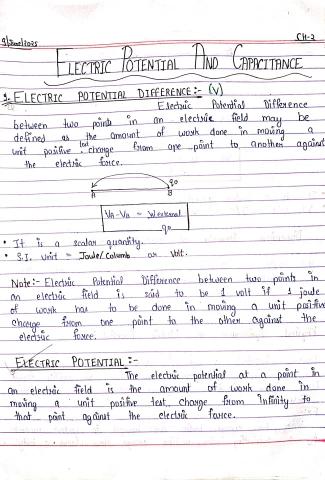 CH-2
ELECTRIC POTENTIAL AND CAPACITANCE
1. ELECTRIC POTENTIAL DIFFERENCE:- (V)
Electric Potential Difference
between two points in an electric field may be
defined as the amount of work done in moving a
unit positive test charge from one point to another against
the electric force.
q0
A B
VB - VA = Wexternal
q0
• It is a scalar quantity.
• S.I. unit = Joule/Columb or Volt.
Note:- Electric Potential Difference between two points in
an electric field is said to be 1 volt if 1 joule
of work has to be done in moving a unit positive
charge from one point to the other against the
electric force.
ELECTRIC POTENTIAL:-
The electric potential at a point in
an electric field is the amount of work done in
moving a unit positive test charge from infinity to
that point against the electric force.